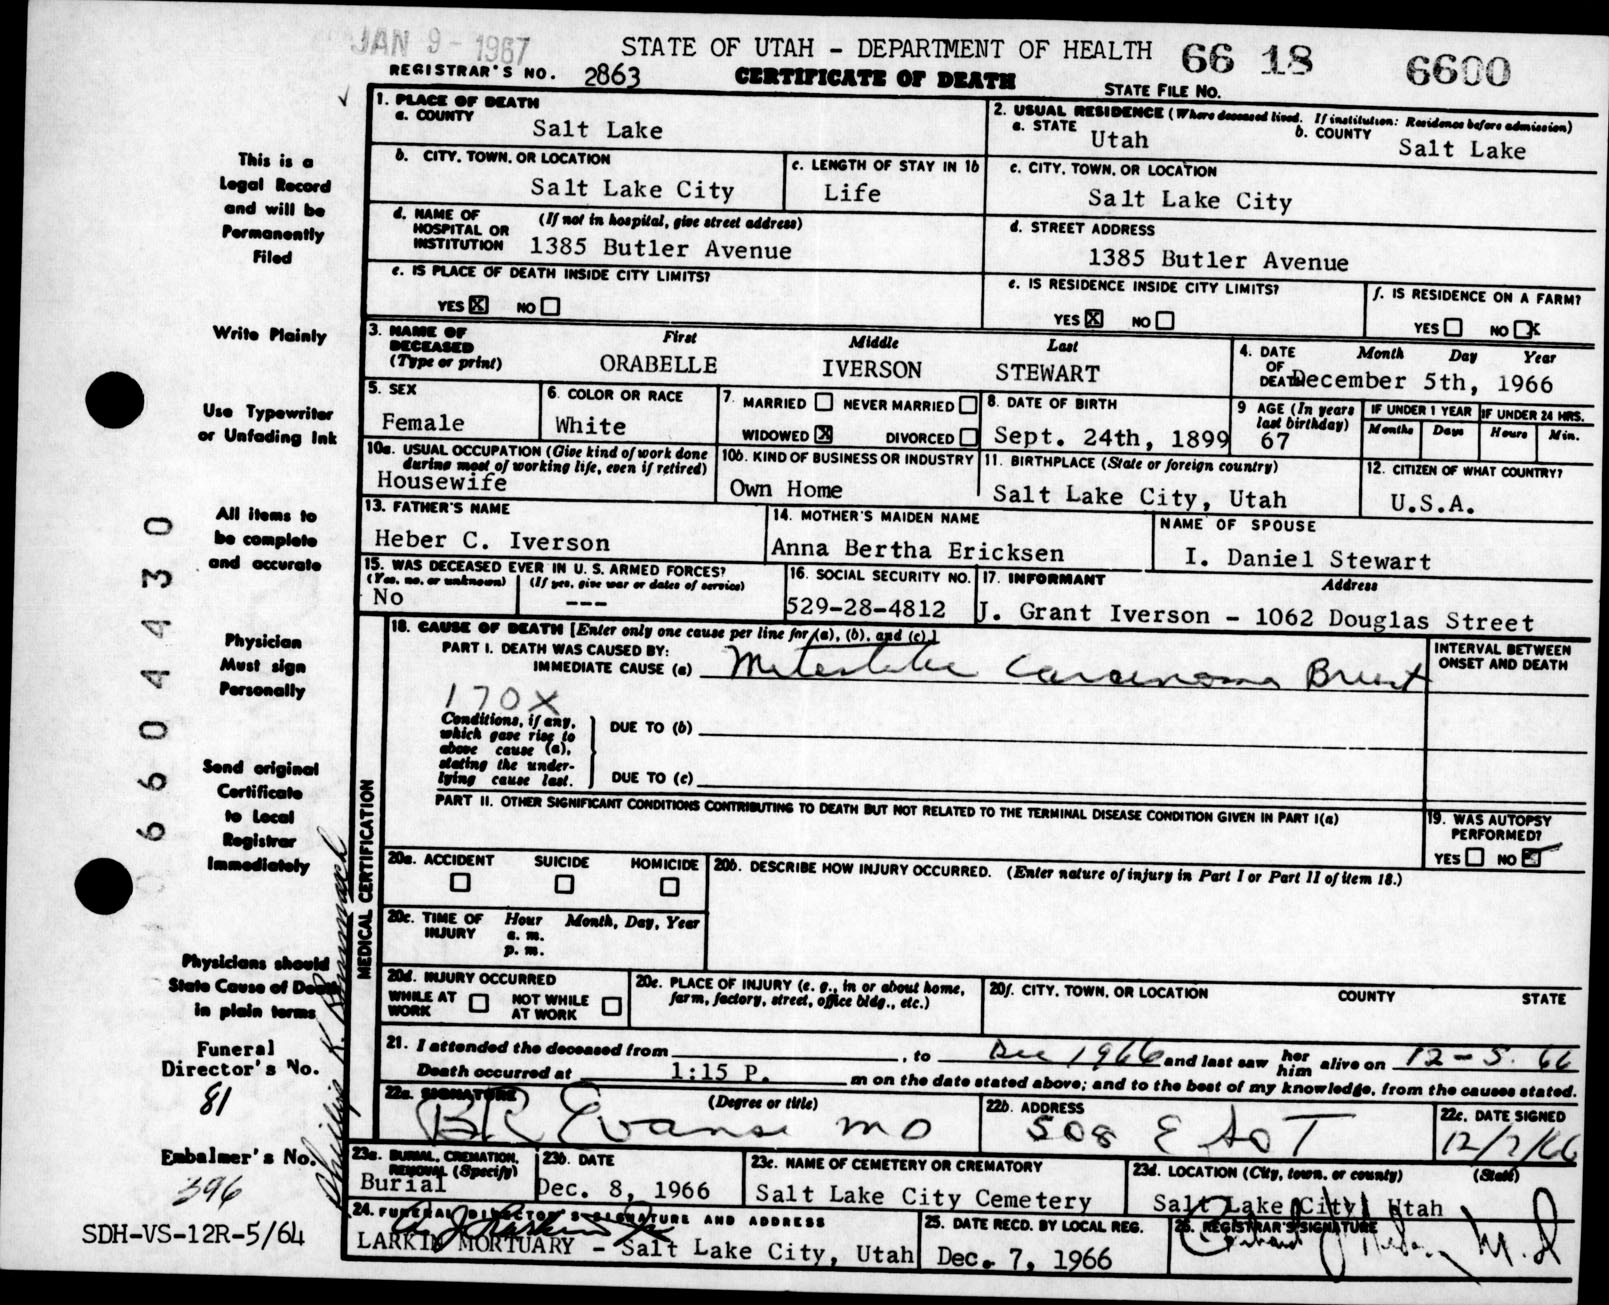 JAN 9 - 1967
STATE OF UTAH - DEPARTMENT OF HEALTH 66 18 6600
REGISTRAR'S NO. 2863 CERTIFICATE OF DEATH STATE FILE NO.
1. PLACE OF DEATH
a. COUNTY Salt Lake
2. USUAL RESIDENCE (Where deceased lived. If institution: Residence before admission)
a. STATE Utah b. COUNTY Salt Lake
b. CITY, TOWN, OR LOCATION Salt Lake City
c. LENGTH OF STAY IN 1b Life
c. CITY, TOWN, OR LOCATION Salt Lake City
d. NAME OF HOSPITAL OR INSTITUTION (If not in hospital, give street address) 1385 Butler Avenue
d. STREET ADDRESS 1385 Butler Avenue
e. IS PLACE OF DEATH INSIDE CITY LIMITS?
YES X NO
e. IS RESIDENCE INSIDE CITY LIMITS?
YES X NO
f. IS RESIDENCE ON A FARM?
YES NO X
3. NAME OF DECEASED (Type or print) First Middle Last
ORABELLE IVERSON STEWART
4. DATE OF DEATH Month Day Year
December 5th, 1966
5. SEX Female
6. COLOR OR RACE White
7. MARRIED NEVER MARRIED
WIDOWED X DIVORCED
8. DATE OF BIRTH Sept. 24th, 1899
9 AGE (In years last birthday) 67
IF UNDER 1 YEAR Months Days
IF UNDER 24 HRS. Hours Min.
10a. USUAL OCCUPATION (Give kind of work done during most of working life, even if retired) Housewife
10b. KIND OF BUSINESS OR INDUSTRY Own Home
11. BIRTHPLACE (State or foreign country) Salt Lake City, Utah
12. CITIZEN OF WHAT COUNTRY? U.S.A.
13. FATHER'S NAME Heber C. Iverson
14. MOTHER'S MAIDEN NAME Anna Bertha Ericksen
NAME OF SPOUSE I. Daniel Stewart
15. WAS DECEASED EVER IN U. S. ARMED FORCES?
(Yes, no, or unknown) No (If yes, give war or dates of service) ---
16. SOCIAL SECURITY NO. 529-28-4812
17. INFORMANT Address
J. Grant Iverson - 1062 Douglas Street
MEDICAL CERTIFICATION
18. CAUSE OF DEATH [Enter only one cause per line for (a), (b), and (c).]
PART I. DEATH WAS CAUSED BY:
IMMEDIATE CAUSE (a) Metastatic Carcinoma Breast
INTERVAL BETWEEN ONSET AND DEATH
170X
Conditions, if any, which gave rise to above cause (a), stating the underlying cause last.
DUE TO (b)
DUE TO (c)
PART II. OTHER SIGNIFICANT CONDITIONS CONTRIBUTING TO DEATH BUT NOT RELATED TO THE TERMINAL DISEASE CONDITION GIVEN IN PART I(a)
19. WAS AUTOPSY PERFORMED?
YES NO
20a. ACCIDENT SUICIDE HOMICIDE
20b. DESCRIBE HOW INJURY OCCURRED. (Enter nature of injury in Part I or Part II of item 18.)
20c. TIME OF INJURY Hour a. m. p. m. Month, Day, Year
20d. INJURY OCCURRED
WHILE AT WORK NOT WHILE AT WORK
20e. PLACE OF INJURY (e. g., in or about home, farm, factory, street, office bldg., etc.)
20f. CITY, TOWN, OR LOCATION COUNTY STATE
21. I attended the deceased from , to Dec 1966 and last saw her him alive on 12-5-66
Death occurred at 1:15 P. m on the date stated above; and to the best of my knowledge, from the causes stated.
22a. SIGNATURE (Degree or title) BR Evans MD
22b. ADDRESS 508 E So T
22c. DATE SIGNED 12/7/66
23a. BURIAL, CREMATION, REMOVAL (Specify) Burial
23b. DATE Dec. 8, 1966
23c. NAME OF CEMETERY OR CREMATORY Salt Lake City Cemetery
23d. LOCATION (City, town, or county) (State) Salt Lake City, Utah
24. FUNERAL DIRECTOR'S SIGNATURE AND ADDRESS
LARKIN MORTUARY - Salt Lake City, Utah
25. DATE RECD. BY LOCAL REG. Dec. 7, 1966
26. REGISTRAR'S SIGNATURE
This is a
Legal Record
and will be
Permanently
Filed
Write Plainly
Use Typewriter
or Unfading Ink
All items to
be complete
and accurate
Physician
Must sign
Personally
Send original
Certificate
to Local
Registrar
Immediately
Physicians should
State Cause of Death
in plain terms
Funeral
Director's No.
81
Embalmer's No.
396
SDH-VS-12R-5/64
66 0 4430